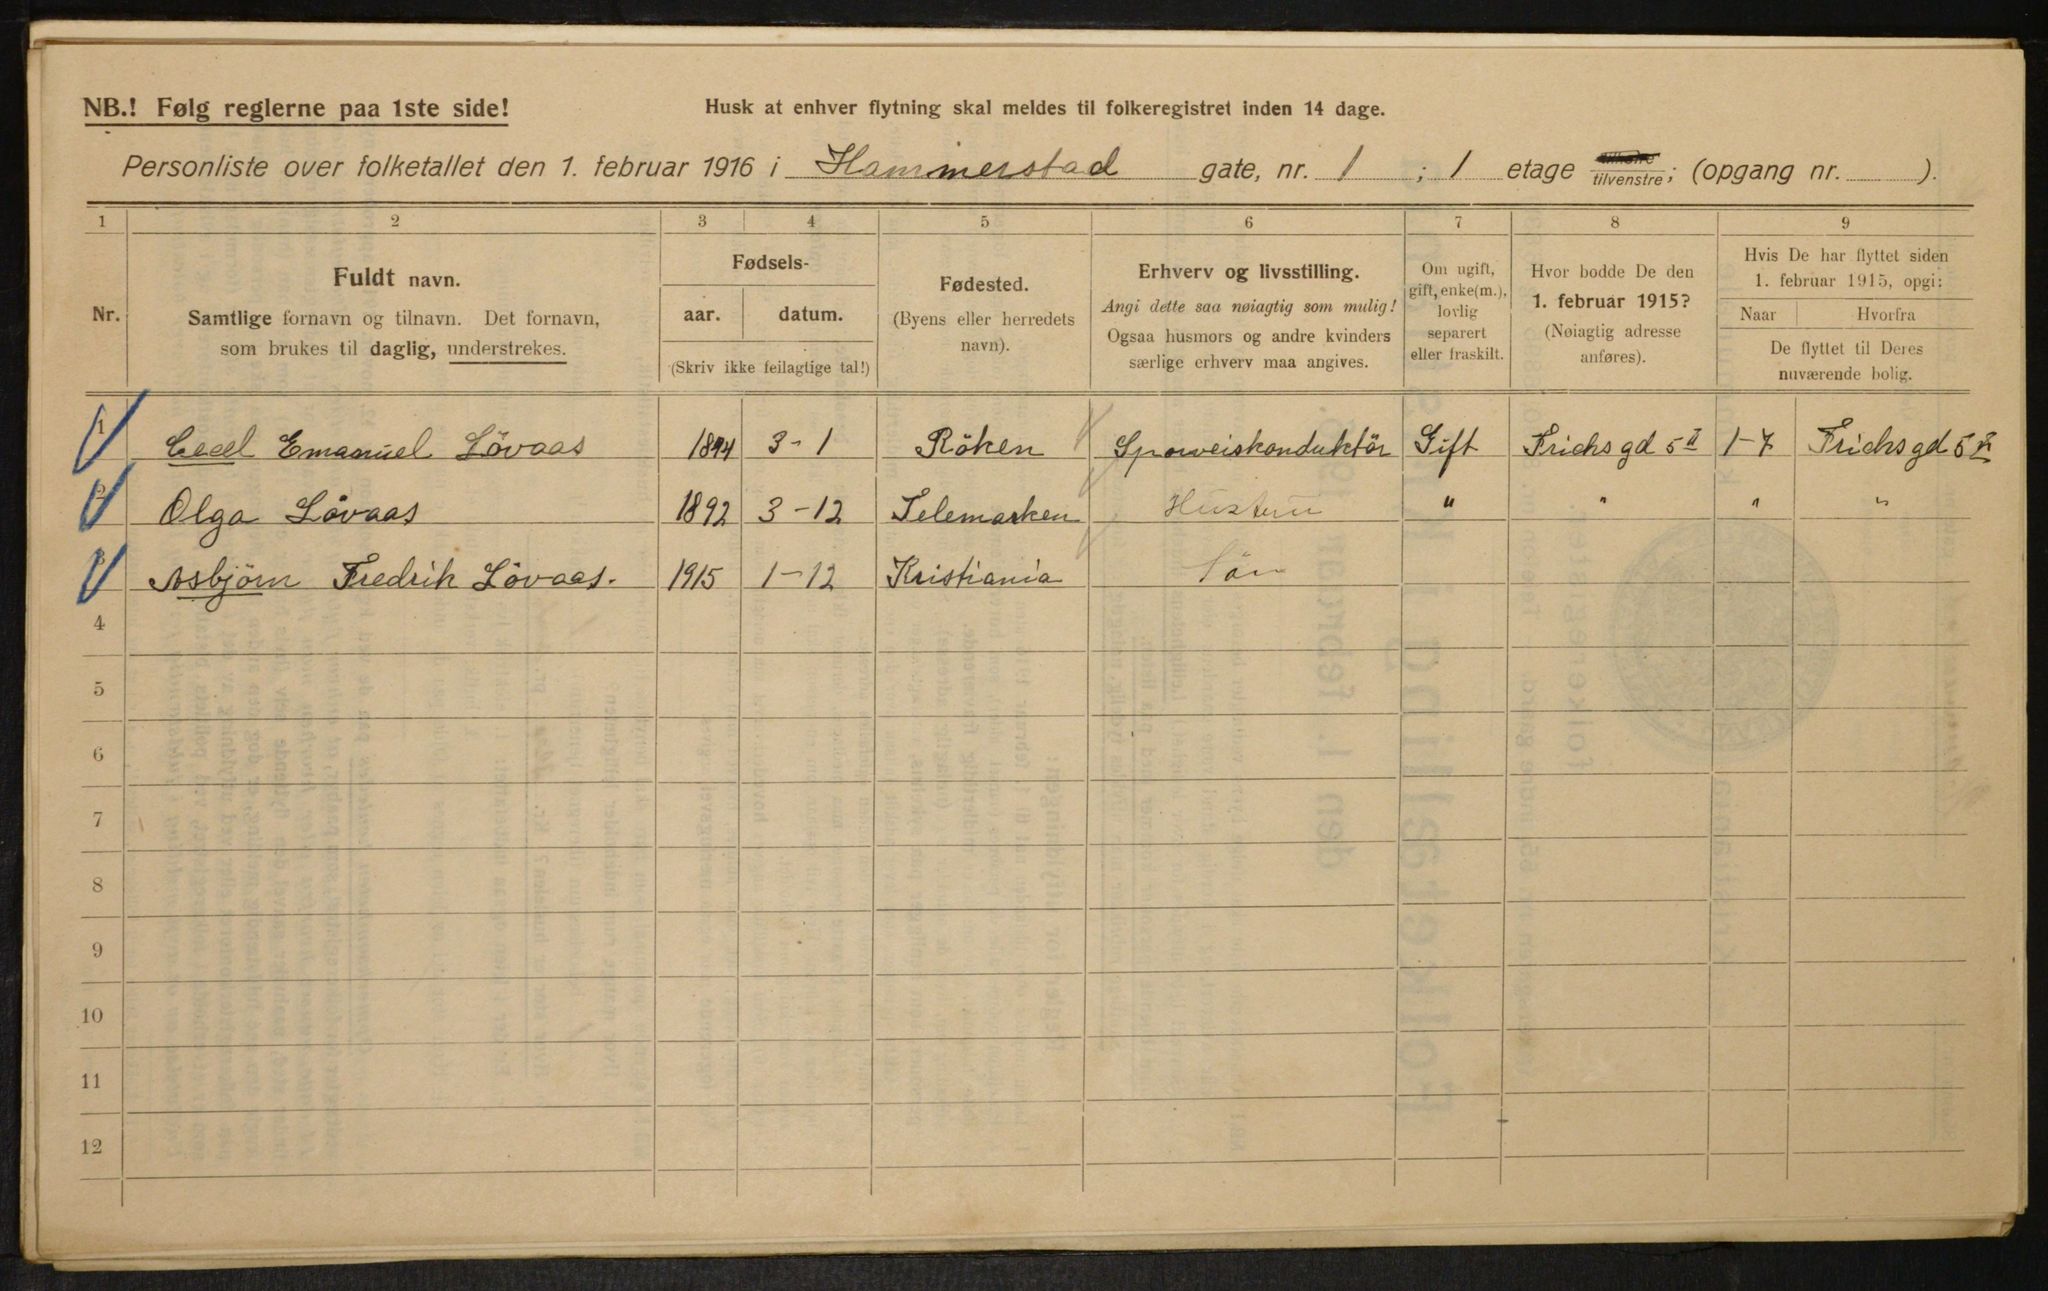 NB.! Følg reglerne paa 1ste side!
Husk at enhver flytning skal meldes til folkeregistret inden 14 dage.
Personliste over folketallet den 1. februar 1916 i Hammerstad gate, nr. 1 ; 1 etage tilhøire tilvenstre; (opgang nr. ).
1 2 3 4 5 6 7 8 9
Nr.
Fuldt navn.
Samtlige fornavn og tilnavn. Det fornavn,
som brukes til daglig, understrekes.
Fødsels-
aar. datum.
(Skriv ikke feilagtige tal!)
Fødested.
(Byens eller herredets
navn).
Erhverv og livsstilling.
Angi dette saa nøiagtig som mulig!
Ogsaa husmors og andre kvinders
særlige erhverv maa angives.
Om ugift,
gift, enke(m.),
lovlig
separert
eller fraskilt.
Hvor bodde De den
1. februar 1915?
(Nøiagtig adresse
anføres).
Hvis De har flyttet siden
1. februar 1915, opgi:
Naar Hvorfra
De flyttet til Deres
nuværende bolig.
1 Emanuel Lövaas 1894 3-1 Röken Sporveiskonduktör Gift Frichs gd 5 II 1-7 Frichs gd 5
2 Olga Lövaas 1892 3-12 Telemarken Hustru " " " "
3 Asbjörn Fredrik Lövaas. 1915 1-12 Kristiania Sön
4
5
6
7
8
9
10
11
12